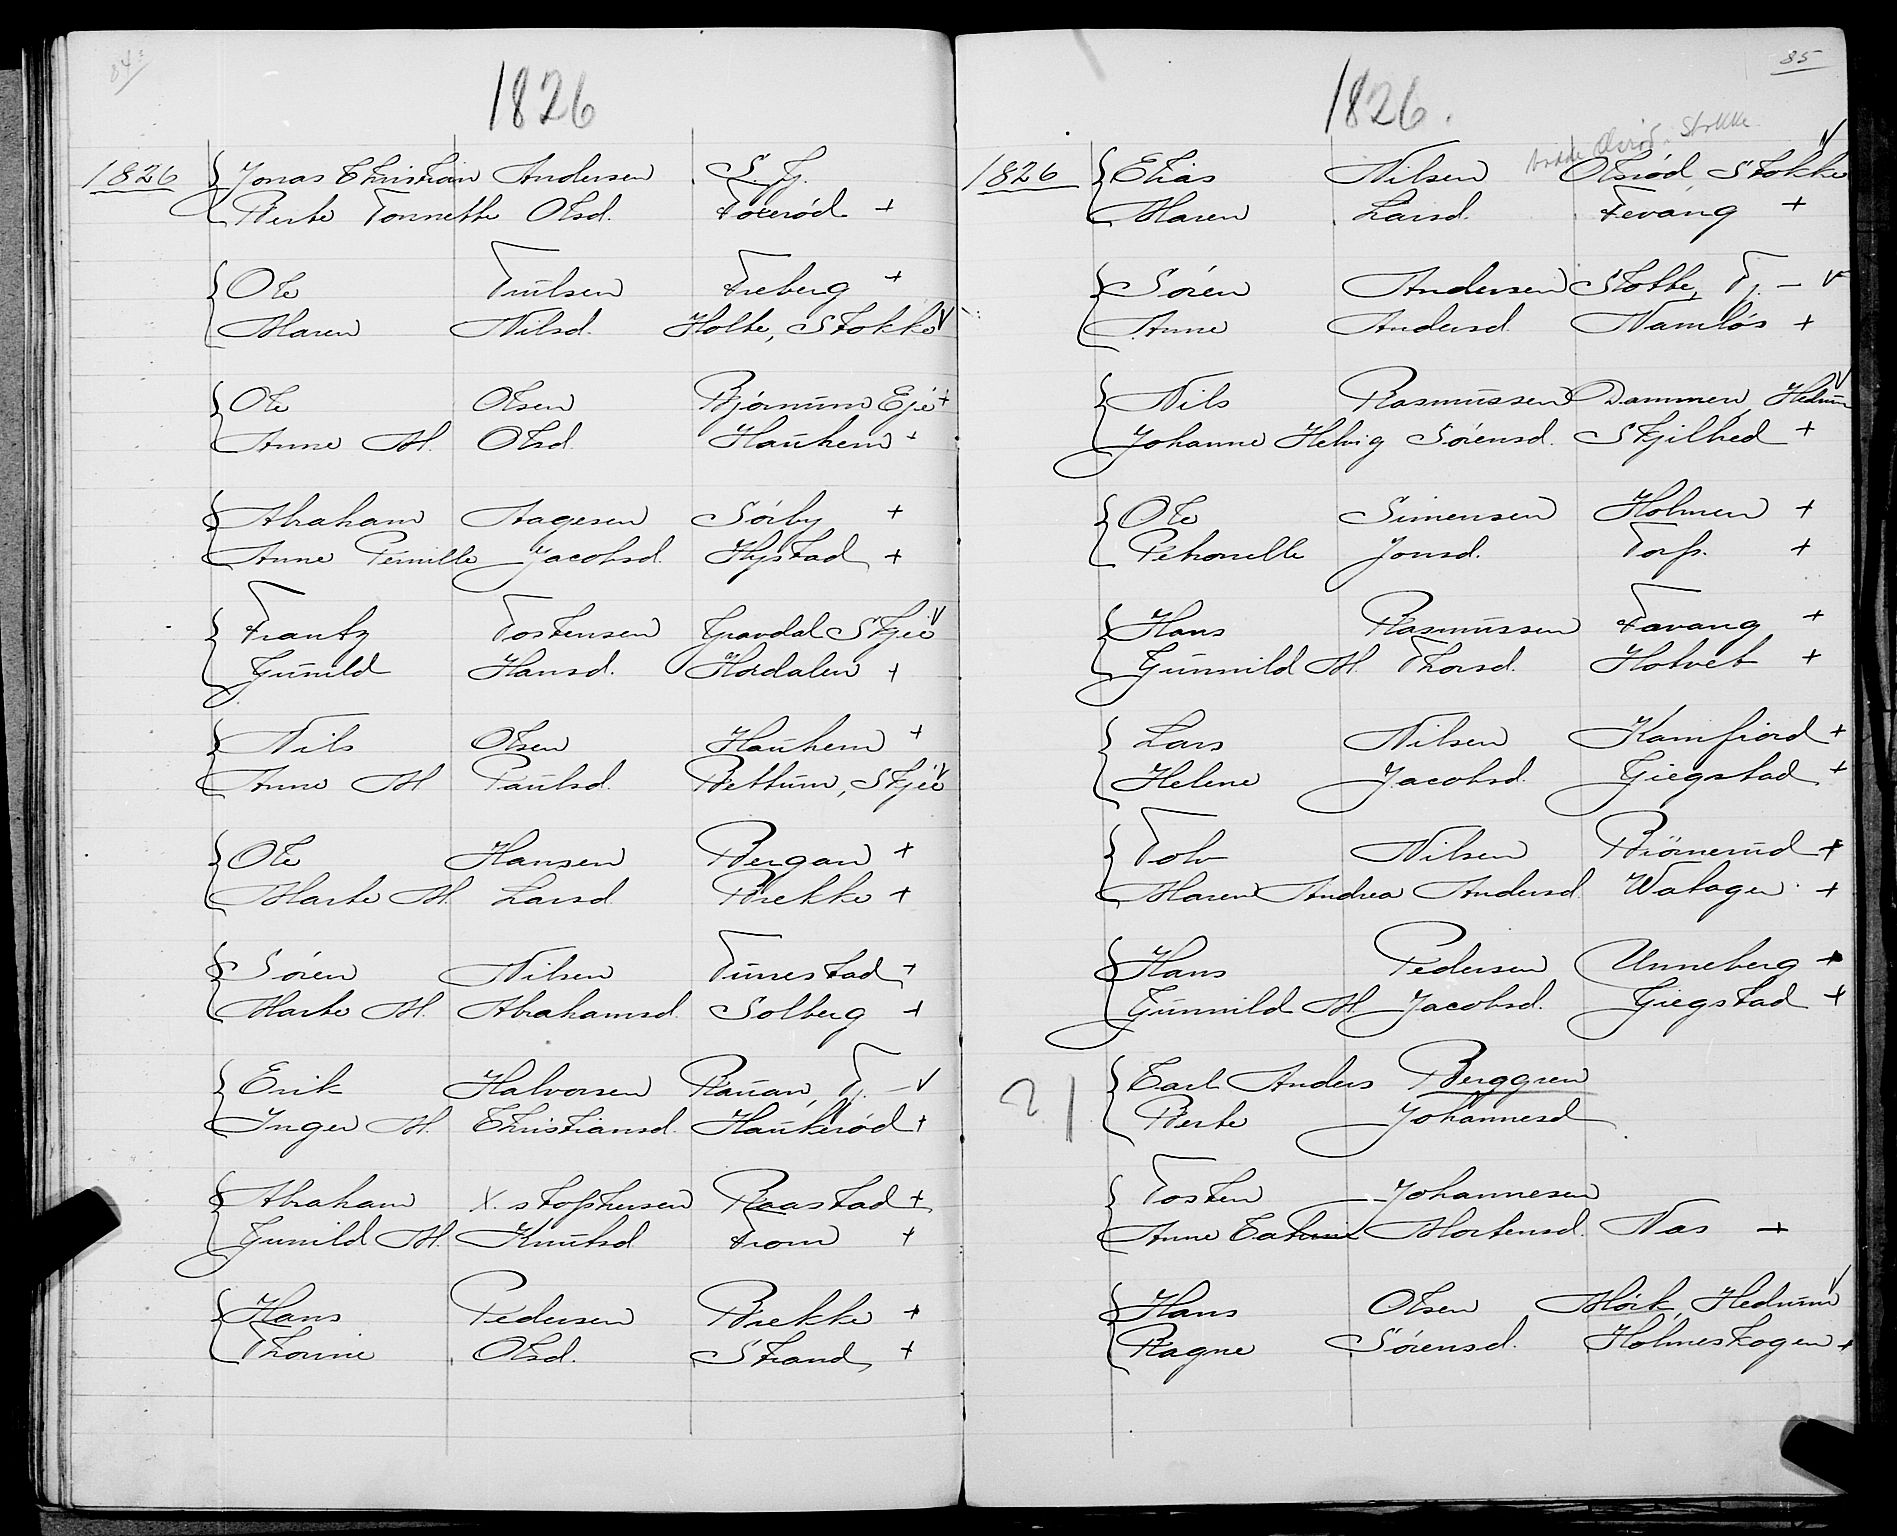 84
1826
1826 Jonas Christian Andersen S. Fj.
Berte Tonnette Olsd. Foxerød +
Ole Trulsen Freberg +
Maren Nilsd. Holte, Stokke V
Ole Olsen Bjørnum Eje +
Anne M. Olsd. Haukem +
Abraham Aagesen Sörby +
Anne Pernille Jacobsd. Hystad +
Frantz Tostensen Gravdal Skjee V
Gunild Hansd. Hordalen +
Nils Olsen Haukem +
Anne M Paulsd. Bettum, Skjee V
Ole Hansen Bergan +
Marte M. Larsd. Brekke +
Sören Nilsen Tunestad +
Marte M. Abrahamsd. Solberg +
Erik Halvorsen Rauan, Tj. - V
Inger M. Christiansd. Haukerød +
Abraham X.stophersen Raastad +
Gunild M. Knutsd From +
Hans Pedersen Brekke +
Thorine Olsd. Strand +
85
1826.
Stokke
1826 Elias Nilsen Olsrød, Stokke V
Maren Larsd. Fevang +
Sören Andersen Stokke, Tj. - V
Anne Andersd. Namløs +
Nils Rasmussen Dammen, Hedrum V
Johanne Helvig Sörensd. Skjilbred +
Ole Simensen Holmen +
Petronelle Jonsd. Torp. +
Hans Rasmussen Favang +
Gunnild M. Thorsd. Hotvet +
Lars Nilsen Kamfiord +
Helene Jacobsd. Giegstad +
Tolv Nilsen Biörnerud +
Maren Andrea Andersd. Watager +
Hans Pedersen Unneberg +
Gunnild M Jacobsd. Giegstad +
? Carl Anders Berggren
Berte Johannesd
Tosten Johannesen
Anne Mortensd. Nas +
Hans Olsen Mörk, Hedrum V
Ragne Sörensd. Holmeskogen +